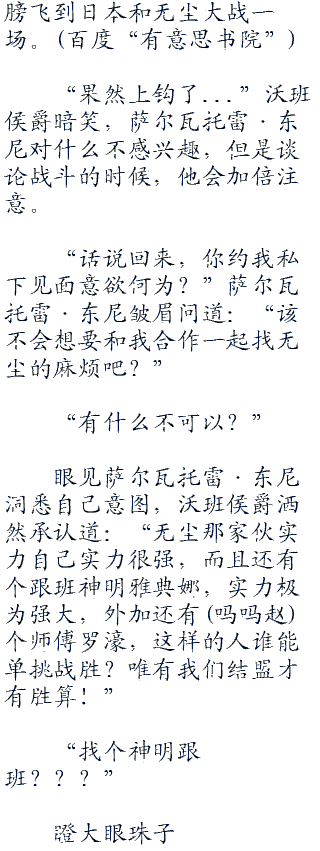 膀飞到日本和无尘大战一
场。(百度“有意思书院”)
“果然上钩了...”沃班
侯爵暗笑，萨尔瓦托雷·东
尼对什么不感兴趣，但是谈
论战斗的时候，他会加倍注
意。
“话说回来，你约我私
下见面意欲何为？”萨尔瓦
托雷·东尼皱眉问道：“该
不会想要和我合作一起找无
尘的麻烦吧？”
“有什么不可以？”
眼见萨尔瓦托雷·东尼
洞悉自己意图，沃班侯爵洒
然承认道：“无尘那家伙实
力自己实力很强，而且还有
个跟班神明雅典娜，实力极
为强大，外加还有(吗吗赵)
个师傅罗濠，这样的人谁能
单挑战胜？唯有我们结盟才
有胜算！”
“找个神明跟
班？？？”
瞪大眼珠子